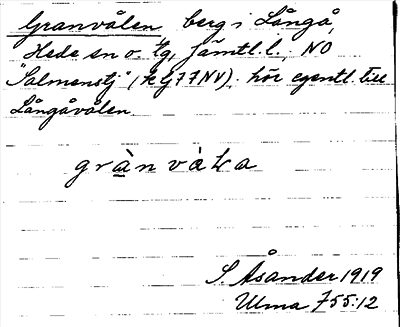 Granvålen, berg i Långå,
Hede sn o. tg, Jämtl. l., NO
"Salmonstj" (kbl 77 NV). hör egentl. till
Långåvålen.
grànvàLa
S. Åsander 1919
Ulma 755:12